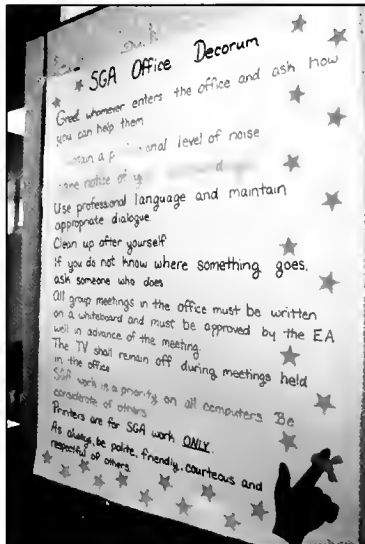 SGA Office Decorum
Greet whomever enters the office and ask how
you can help them
a level of noise
notice of
Use professional language and maintain
appropriate dialogue
Clean up after yourself
If you do not know where something goes,
ask someone who does
All group meetings in the office must be written
on a whiteboard and must be approved by the EA
well in advance of the meeting.
The TV shall remain off during meetings held
in the office
SGA work is a priority on all computers Be
considerate of others
Printers are for SGA work ONLY.
As always, be polite, friendly, courteous and
respectful of others